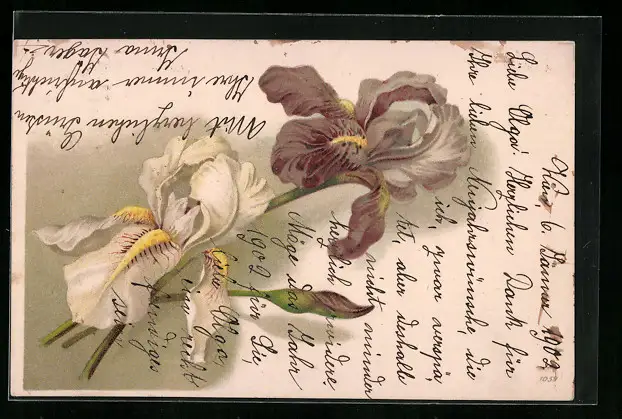 6. Jänner 1902
Liebe Olga! Herzlichen Dank für
Ihre lieben Neujahrswünsche, die
ich zwar verspä
tet, aber deshalb
nicht minder
herzlich erwidere.
Möge das Jahr
1902 für Sie,
liebe Olga,
ein recht
freudiges
sein.
Mit herzlichen Grüßen
Ihre immer aufrichtige
Irma
1059